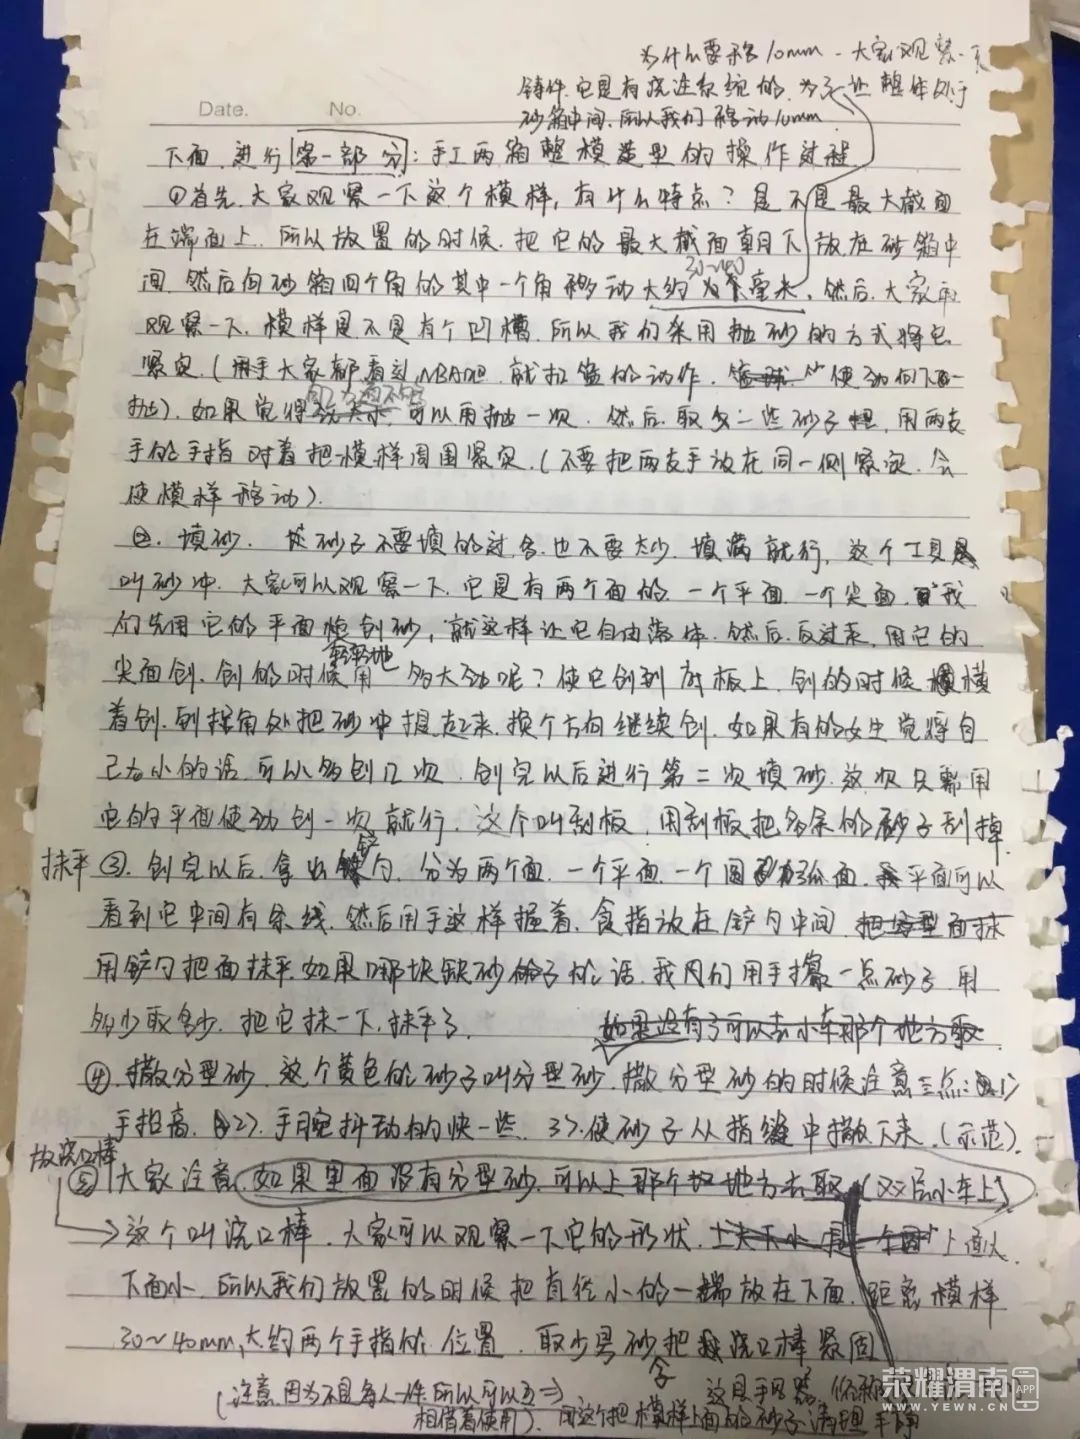 为什么要移10mm - 大家观察一下
铸件.它是有浇注系统的.为了让整体处于
Date. No.
砂箱中间.所以我们移动10mm
下面.进行第一部分:手工两箱整模造型的操作过程
①首先.大家观察一下这个模样,有什么特点?是不是最大截面
在端面上.所以放置的时候.把它的最大截面朝下放在砂箱中
间.然后向砂箱四个角的其中一个角移动大约为毫米.然后.大家再
30~40
观察一下.模样是不是有个凹槽.所以我们采用抛砂的方式将它
紧实.(用手大家都看过NBA吧.就扣篮的动作.使劲向下一
抛).如果觉得可以再抛一次.然后.取少一些砂子.用两支
手的手指对着把模样周围紧实.(不要把两支手放在同一侧紧实.会
使模样移动).
②.填砂.砂子不要填的过多.也不要太少.填满就行.这个工具
叫砂冲.大家可以观察一下.它是有两个面的.一个平面.一个尖面.我
们先用它的平面刨砂,就这样让它自由落体.然后.反过来.用它的
轻轻地
尖面刨.刨的时候用多大劲呢?使它刨到底板上.刨的时候横
着刨.到拐角处把砂冲提起来.换个方向继续刨.如果有的女生觉得自
己力小的话.可以多刨几次.刨完以后进行第二次填砂.这次只需用
它的平面使劲刨一次就行.这个叫刮板.用刮板把多余的砂子刮掉
抹平 ③.刨完以后.拿出铲勺.分为两个面.一个平面.一个圆弧面.平面可以
看到它中间有条线.然后用手这样握着.食指放在铲勺中间.把分型面抹
用铲勺把面抹平.如果哪块缺砂子的话.我们用手撮一点砂子.用
多少取多少.把它抹一下.抹平了. 如果没有了可以去小车那个地方取
④.撒分型砂.这个黄色的砂子叫分型砂.撒分型砂的时候注意三点:1)
手抬高.2).手腕抖动的快一些.3).使砂子从指缝中撒下来.(示范).
放浇口棒
⑤大家注意.如果里面没有分型砂.可以上那个地方去取(双层小车上)
这个叫浇口棒.大家可以观察一下它的形状.上面大
下面小.所以我们放置的时候把直径小的一端放在下面.距离模样
30~40mm,大约两个手指的位置.取少量砂把浇口棒紧固
(注意.因为不是每人一件.所以可以互 这是手风器.俗称
相借着使用).用这个把模样上面的砂子清理干净
荣耀渭南 APP
WWW.YEWN.CN